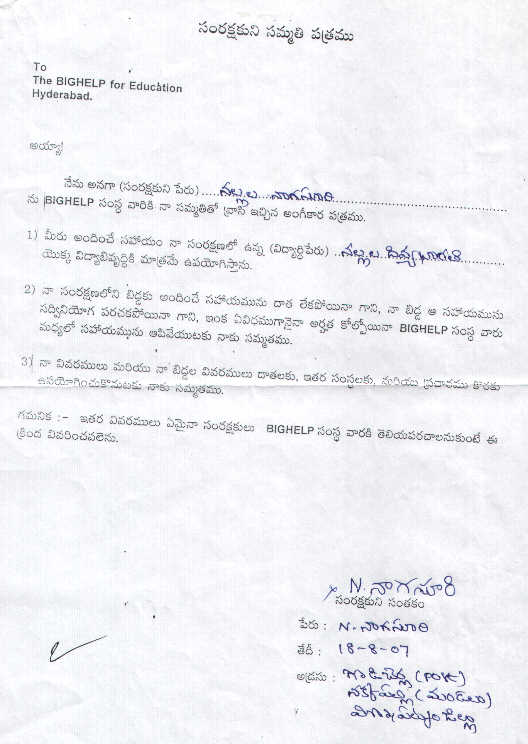 సంరక్షకుని సమ్మతి పత్రము
To
The BIGHELP for Education
Hyderabad.
అయ్యా!
నేను అనగా (సంరక్షకుని పేరు).....నల్లల నాగసూరి
ను BIGHELP సంస్థ వారికి నా సమ్మతితో వ్రాసి ఇచ్చిన అంగీకార పత్రము.
1) మీరు అందించే సహాయం నా సంరక్షణలో ఉన్న (విద్యార్థిపేరు) ..నల్లల దివ్యభారతి
యొక్కు విద్యాభివృద్ధికి మాత్రమే ఉపయోగిస్తాను.
2) నా సంరక్షణలోని బిడ్డకు అందించే సహాయమును దాత లేకపోయినా గాని, నా బిడ్డ ఆ సహాయమును
సద్వినియోగ పరచకపోయినా గాని, ఇంక ఏవిధముగానైనా అర్హత కోల్పోయినా BIGHELP సంస్థ వారు
మధ్యలో సహాయమును ఆపివేయుటకు నాకు సమ్మతము.
3) నా వివరములు మరియు నా బిడ్డల వివరములు దాతలకు, ఇతర సంస్థలకు, మరియు ప్రచారము కొరకు
ఉపయోగించుకొనుటకు నాకు సమ్మతము.
గమనిక :- ఇతర వివరములు ఏమైనా సంరక్షకులు BIGHELP సంస్థ వారకి తెలియపరచాలనుకుంటే ఈ
క్రింద వివరించవలెను.
N. నాగసూరి
సంరక్షకుని సంతకం
పేరు : N. నాగసూరి
తేదీ : 18-8-07
అడ్రసు :
నక్కపల్లి (మండలం)
విశాఖపట్నం జిల్లా